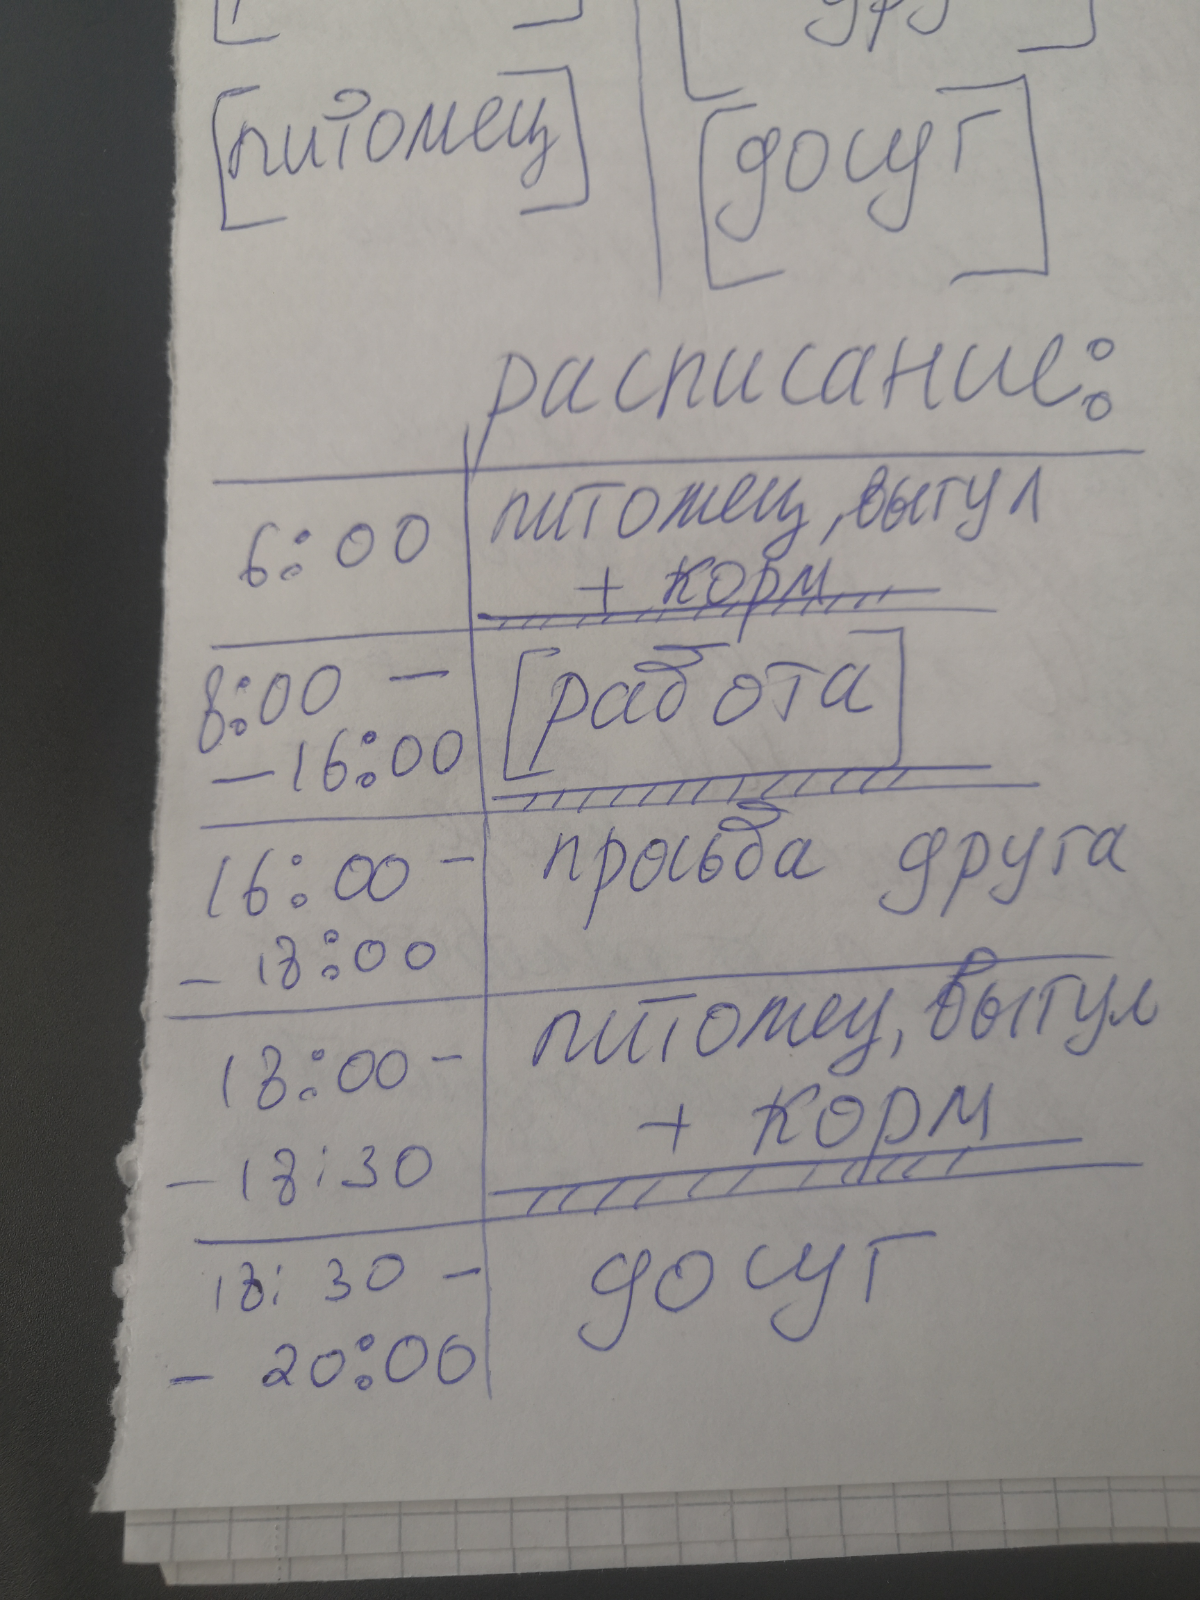 дру
[питомец]
[досуг]
расписание:
6:00
питомец, выгул
+ корм
8:00 –
– 16:00
[работа]
16:00 –
– 18:00
просьба друга
18:00 –
– 18:30
питомец, выгул
+ корм
18:30 –
– 20:00
досуг